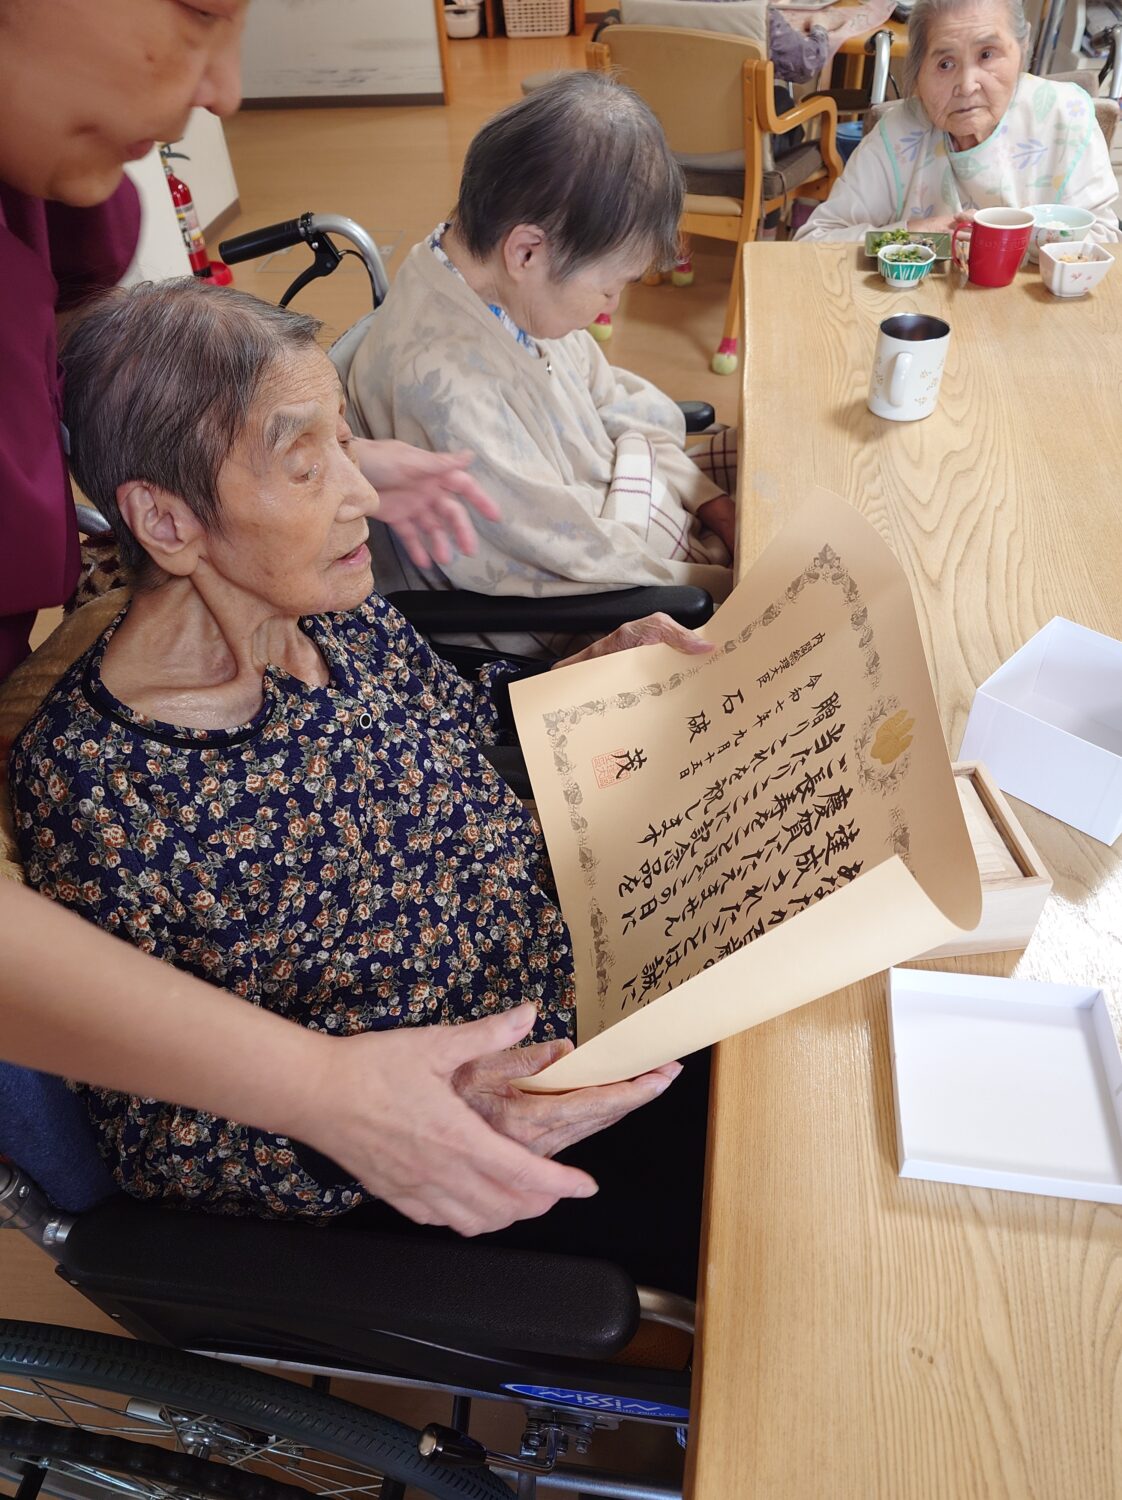 あなたが百歳の
達成されたことは誠に
慶賀にたえません
ご長寿をことほぎこの日に
当たりここに記念品を
贈りこれを祝します
令和七年九月十五日
内閣総理大臣
石破茂
NISSIN